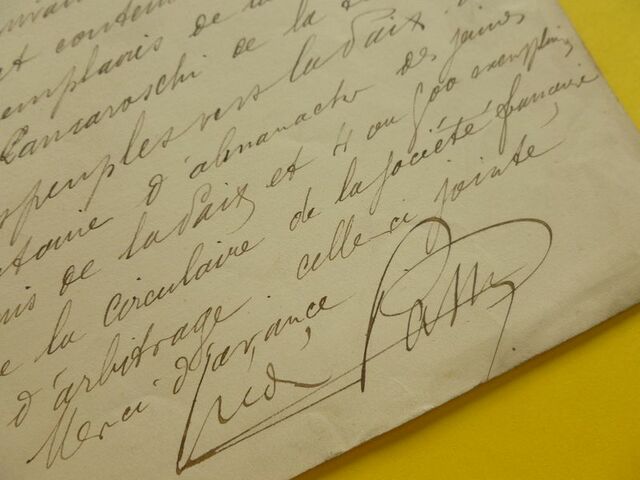 et contem
emplaires de la
Pancaroschi de la
peuples vers la Paix
d'almanachs des jeunes
mis de la Paix et 4 ou 500 exemplaires
e la circulaire de la société française
d'arbitrage celle-ci jointe
Merci d'avance,
Fréd Passy